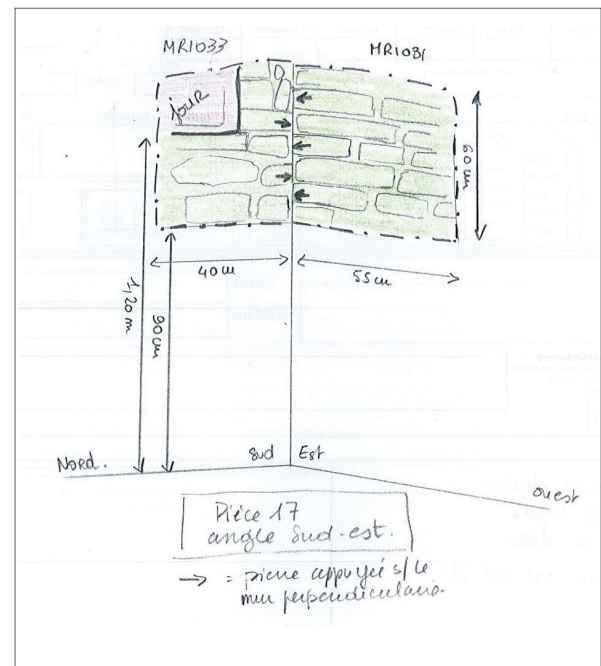 MR1033
MR1081
jour
60 cm
40 cm
55 cm
1,20 m
90 cm
Nord.
Sud
Est
ouest
Pièce 17
angle Sud-est.
→ = pierre appuyée s/ le
mur perpendiculaire.